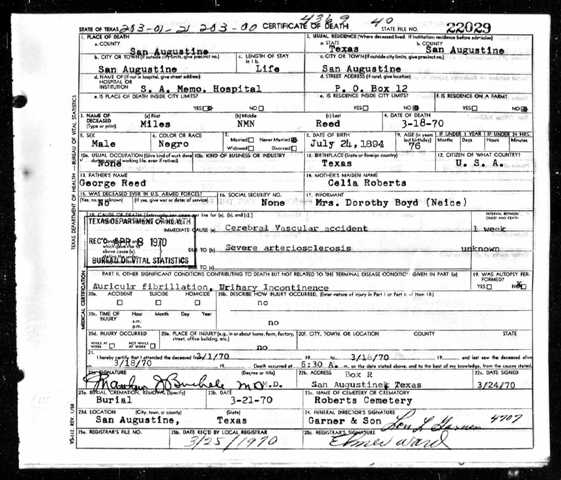 4369 40
STATE OF TEXAS 203-01-21 203-00 CERTIFICATE OF DEATH 22029
1. PLACE OF DEATH 2. USUAL RESIDENCE (Where deceased lived. If institution: residence before admission)
a. COUNTY San Augustine a. STATE Texas b. COUNTY San Augustine
b. CITY OR TOWN (If outside city limits, give precinct no.) c. LENGTH OF STAY in 1 b. c. CITY OR TOWN (If outside city limits, give precinct no.)
San Augustine Life San Augustine
d. NAME OF (If not in hospital, give street address) d. STREET ADDRESS
HOSPITAL OR INSTITUTION S. A. Memo. Hospital P. O. Box 12
e. IS PLACE OF DEATH INSIDE CITY LIMITS? e. IS RESIDENCE INSIDE CITY LIMITS? f. IS RESIDENCE ON A FARM?
YES NO YES NO YES NO
3. NAME OF DECEASED (Type or print) (a) First (b) Middle (c) Last 4. DATE OF DEATH
Miles NMN Reed 3-18-70
5. SEX 6. COLOR OR RACE 7. Married Never Married 8. DATE OF BIRTH 9. AGE (In years last birthday) IF UNDER 1 YEAR IF UNDER 24 HRS.
Male Negro Widowed Divorced July 24, 1894 76 Months Days Hours Min.
10a. USUAL OCCUPATION (Give kind of work done 10b. KIND OF BUSINESS OR INDUSTRY 11. BIRTHPLACE (State or foreign country) 12. CITIZEN OF WHAT COUNTRY?
None Texas U. S. A.
13. FATHER'S NAME 14. MOTHER'S MAIDEN NAME
George Reed Celia Roberts
15. WAS DECEASED EVER IN U.S. ARMED FORCES? 16. SOCIAL SECURITY NO. 17. INFORMANT
No (If yes, give war or dates of service) None Mrs. Dorothy Boyd (Neice)
18. CAUSE OF DEATH [Enter only one cause per line for (a), (b), and (c).] INTERVAL BETWEEN ONSET AND DEATH
TEXAS DEPARTMENT OF HEALTH
IMMEDIATE CAUSE (a) Cerebral Vascular accident 1 week
REC'D APR 8 1970
DUE TO (b) Severe arteriosclerosis unknown
BUREAU OF VITAL STATISTICS
PART II. OTHER SIGNIFICANT CONDITIONS CONTRIBUTING TO DEATH BUT NOT RELATED TO THE TERMINAL DISEASE CONDITION GIVEN IN PART I(a) 19. WAS AUTOPSY PERFORMED?
Auriculr fibrillation, Urinary Incontinence YES NO
20a. ACCIDENT SUICIDE HOMICIDE 20b. DESCRIBE HOW INJURY OCCURRED. (Enter nature of injury in Part I or Part II of item 18)
no
20c. TIME OF INJURY Hour Month Day Year
a.m.
p.m.
20d. INJURY OCCURRED 20e. PLACE OF INJURY (e.g., in or about home, farm, factory, street, office building, etc.) 20f. CITY, TOWN, OR LOCATION COUNTY STATE
WHILE AT WORK NOT WHILE AT WORK no
21. I hereby certify that I attended the deceased from 3/1/70 19 to 3/18/70 19 and last saw the deceased alive
on 3/18/70 19 Death occurred at 5:30 A. m. on the date stated above; and to the best of my knowledge, from the causes stated.
22a. SIGNATURE (Degree or title) 22b. ADDRESS Box R 22c. DATE SIGNED
M.D. San Augustine, Texas 3/24/70
23a. BURIAL, CREMATION, REMOVAL (Specify) 23b. DATE 23c. NAME OF CEMETERY OR CREMATORY
Burial 3-21-70 Roberts Cemetery
23d. LOCATION (City, town, or county) (State) 24. FUNERAL DIRECTOR'S SIGNATURE
San Augustine, Texas Garner & Son 4707
25a. REGISTRAR'S FILE NO. 25b. DATE REC'D BY LOCAL REGISTRAR 25c. REGISTRAR'S SIGNATURE
3/25/1970 Elmer Ward
TEXAS DEPARTMENT OF HEALTH — BUREAU OF VITAL STATISTICS
MEDICAL CERTIFICATION